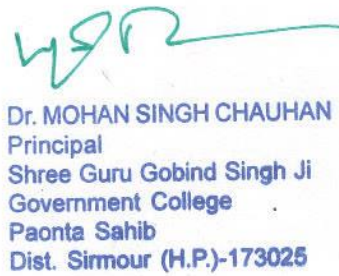 Dr. MOHAN SINGH CHAUHAN
Principal
Shree Guru Gobind Singh Ji
Government College
Paonta Sahib
Dist. Sirmour (H.P.)-173025